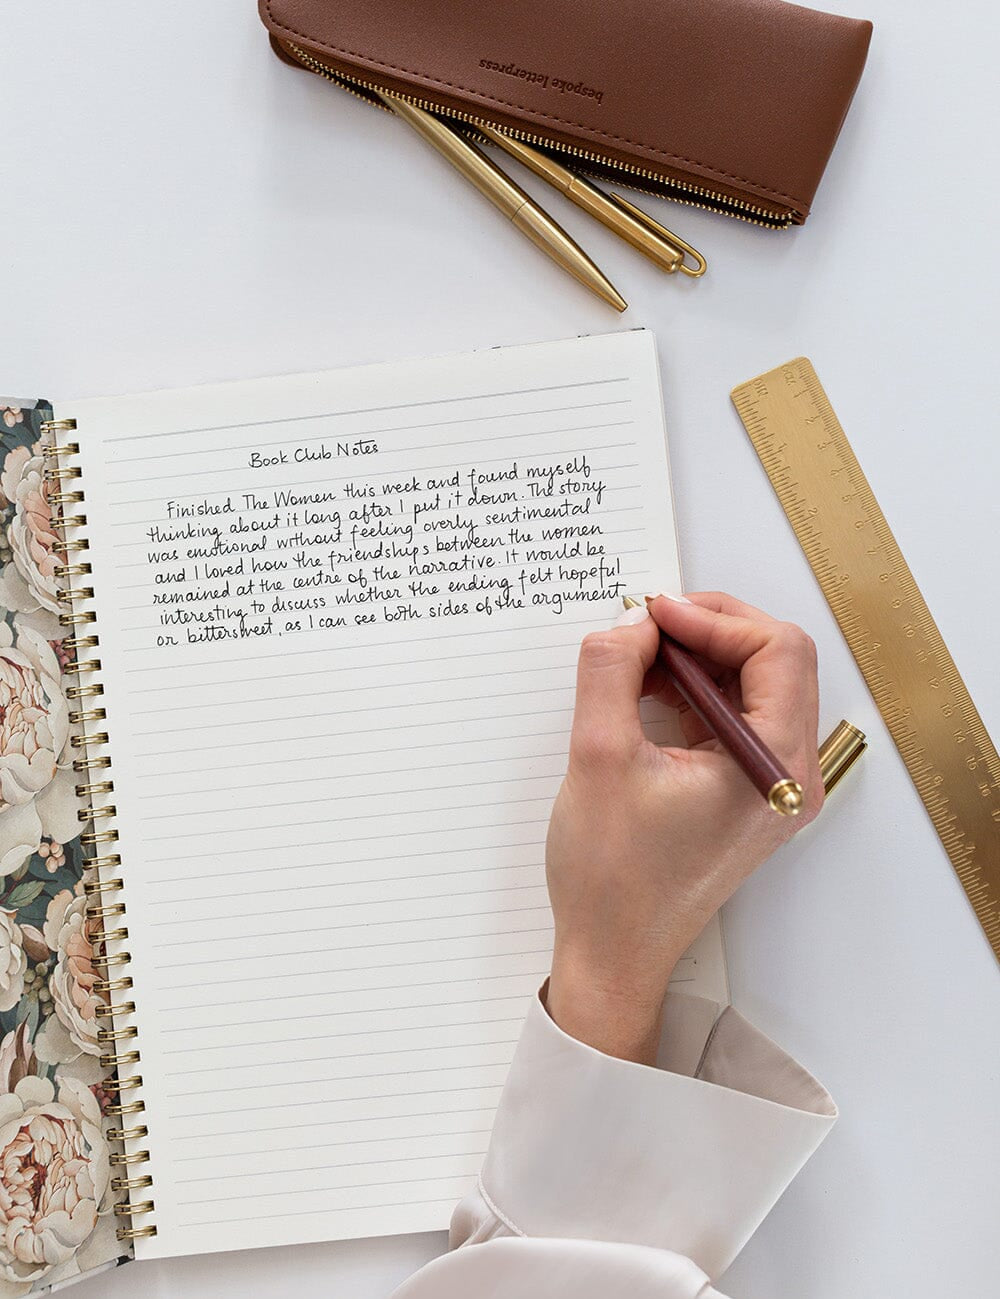 bespoke letterpress
Book Club Notes
Finished The Women this week and found myself
thinking about it long after I put it down. The story
was emotional without feeling overly sentimental
and I loved how the friendships between the women
remained at the centre of the narrative. It would be
interesting to discuss whether the ending felt hopeful
or bittersweet, as I can see both sides of the argument
1
2
3
4
5
6
7
8
9
10
11
12
13
14
15
16
1
2
3
4
5
6
7